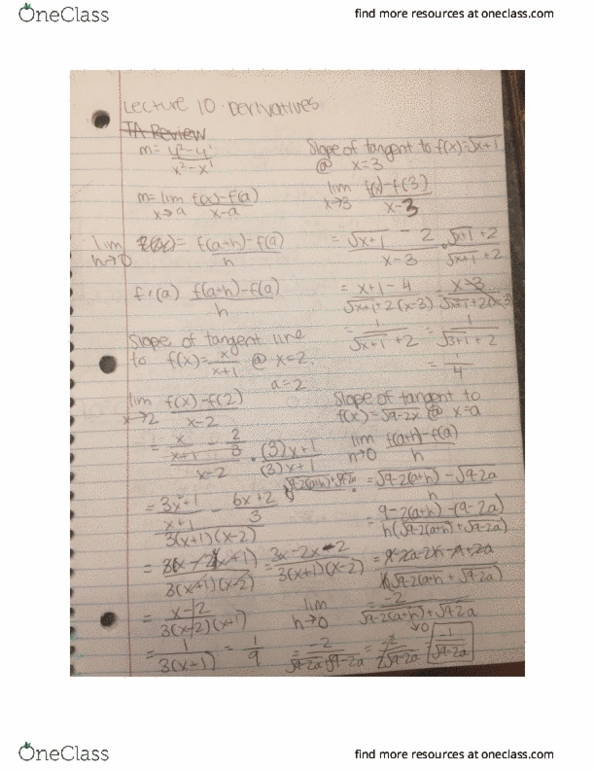 OneClass
find more resources at oneclass.com
Lecture 10 Derivatives
TA Review
m = y² - y¹ / x² - x¹
m = lim x→a f(x) - f(a) / x - a
lim h→0 = f(a+h) - f(a) / h
f'(a) f(a+h) - f(a) / h
Slope of tangent line
to f(x) = x / x+1 @ x=2
a=2
lim x→2 f(x) - f(2) / x - 2
= x/x+1 - 2/3 / x-2 · (3)x+1 / (3)x+1
= 3x+1 / x+1 - 6x+2 / 3 / 3(x+1)(x-2)
= 3x-2x-2 / 3(x+1)(x-2)
= x-2 / 3(x-2)(x+1)
= 1 / 3(x+1) = 1/9
Slope of tangent to f(x)=√x+1
@ x=3
lim x→3 f(x) - f(3) / x-3
= √x+1 - 2 / x-3 · √x+1 +2 / √x+1 +2
= x+1-4 / √x+1+2(x-3) = x-3 / √x+1+2(x-3)
= 1 / √x+1 +2 = 1 / √3+1 +2
= 1/4
Slope of tangent to
f(x)=√9-2x @ x=a
lim h→0 f(a+h) - f(a) / h
= √9-2(a+h) - √9-2a / h
√9-2(a+h)+√9-2a
= 9-2(a+h)-(9-2a) / h(√9-2(a+h)+√9-2a)
= 9-2a-2h-9+2a / h(√9-2(a+h)+√9-2a)
lim h→0 = -2 / √9-2(a+h)+√9-2a
→0
= -2 / √9-2a+√9-2a = -2 / 2√9-2a = -1 / √9-2a
OneClass
find more resources at oneclass.com